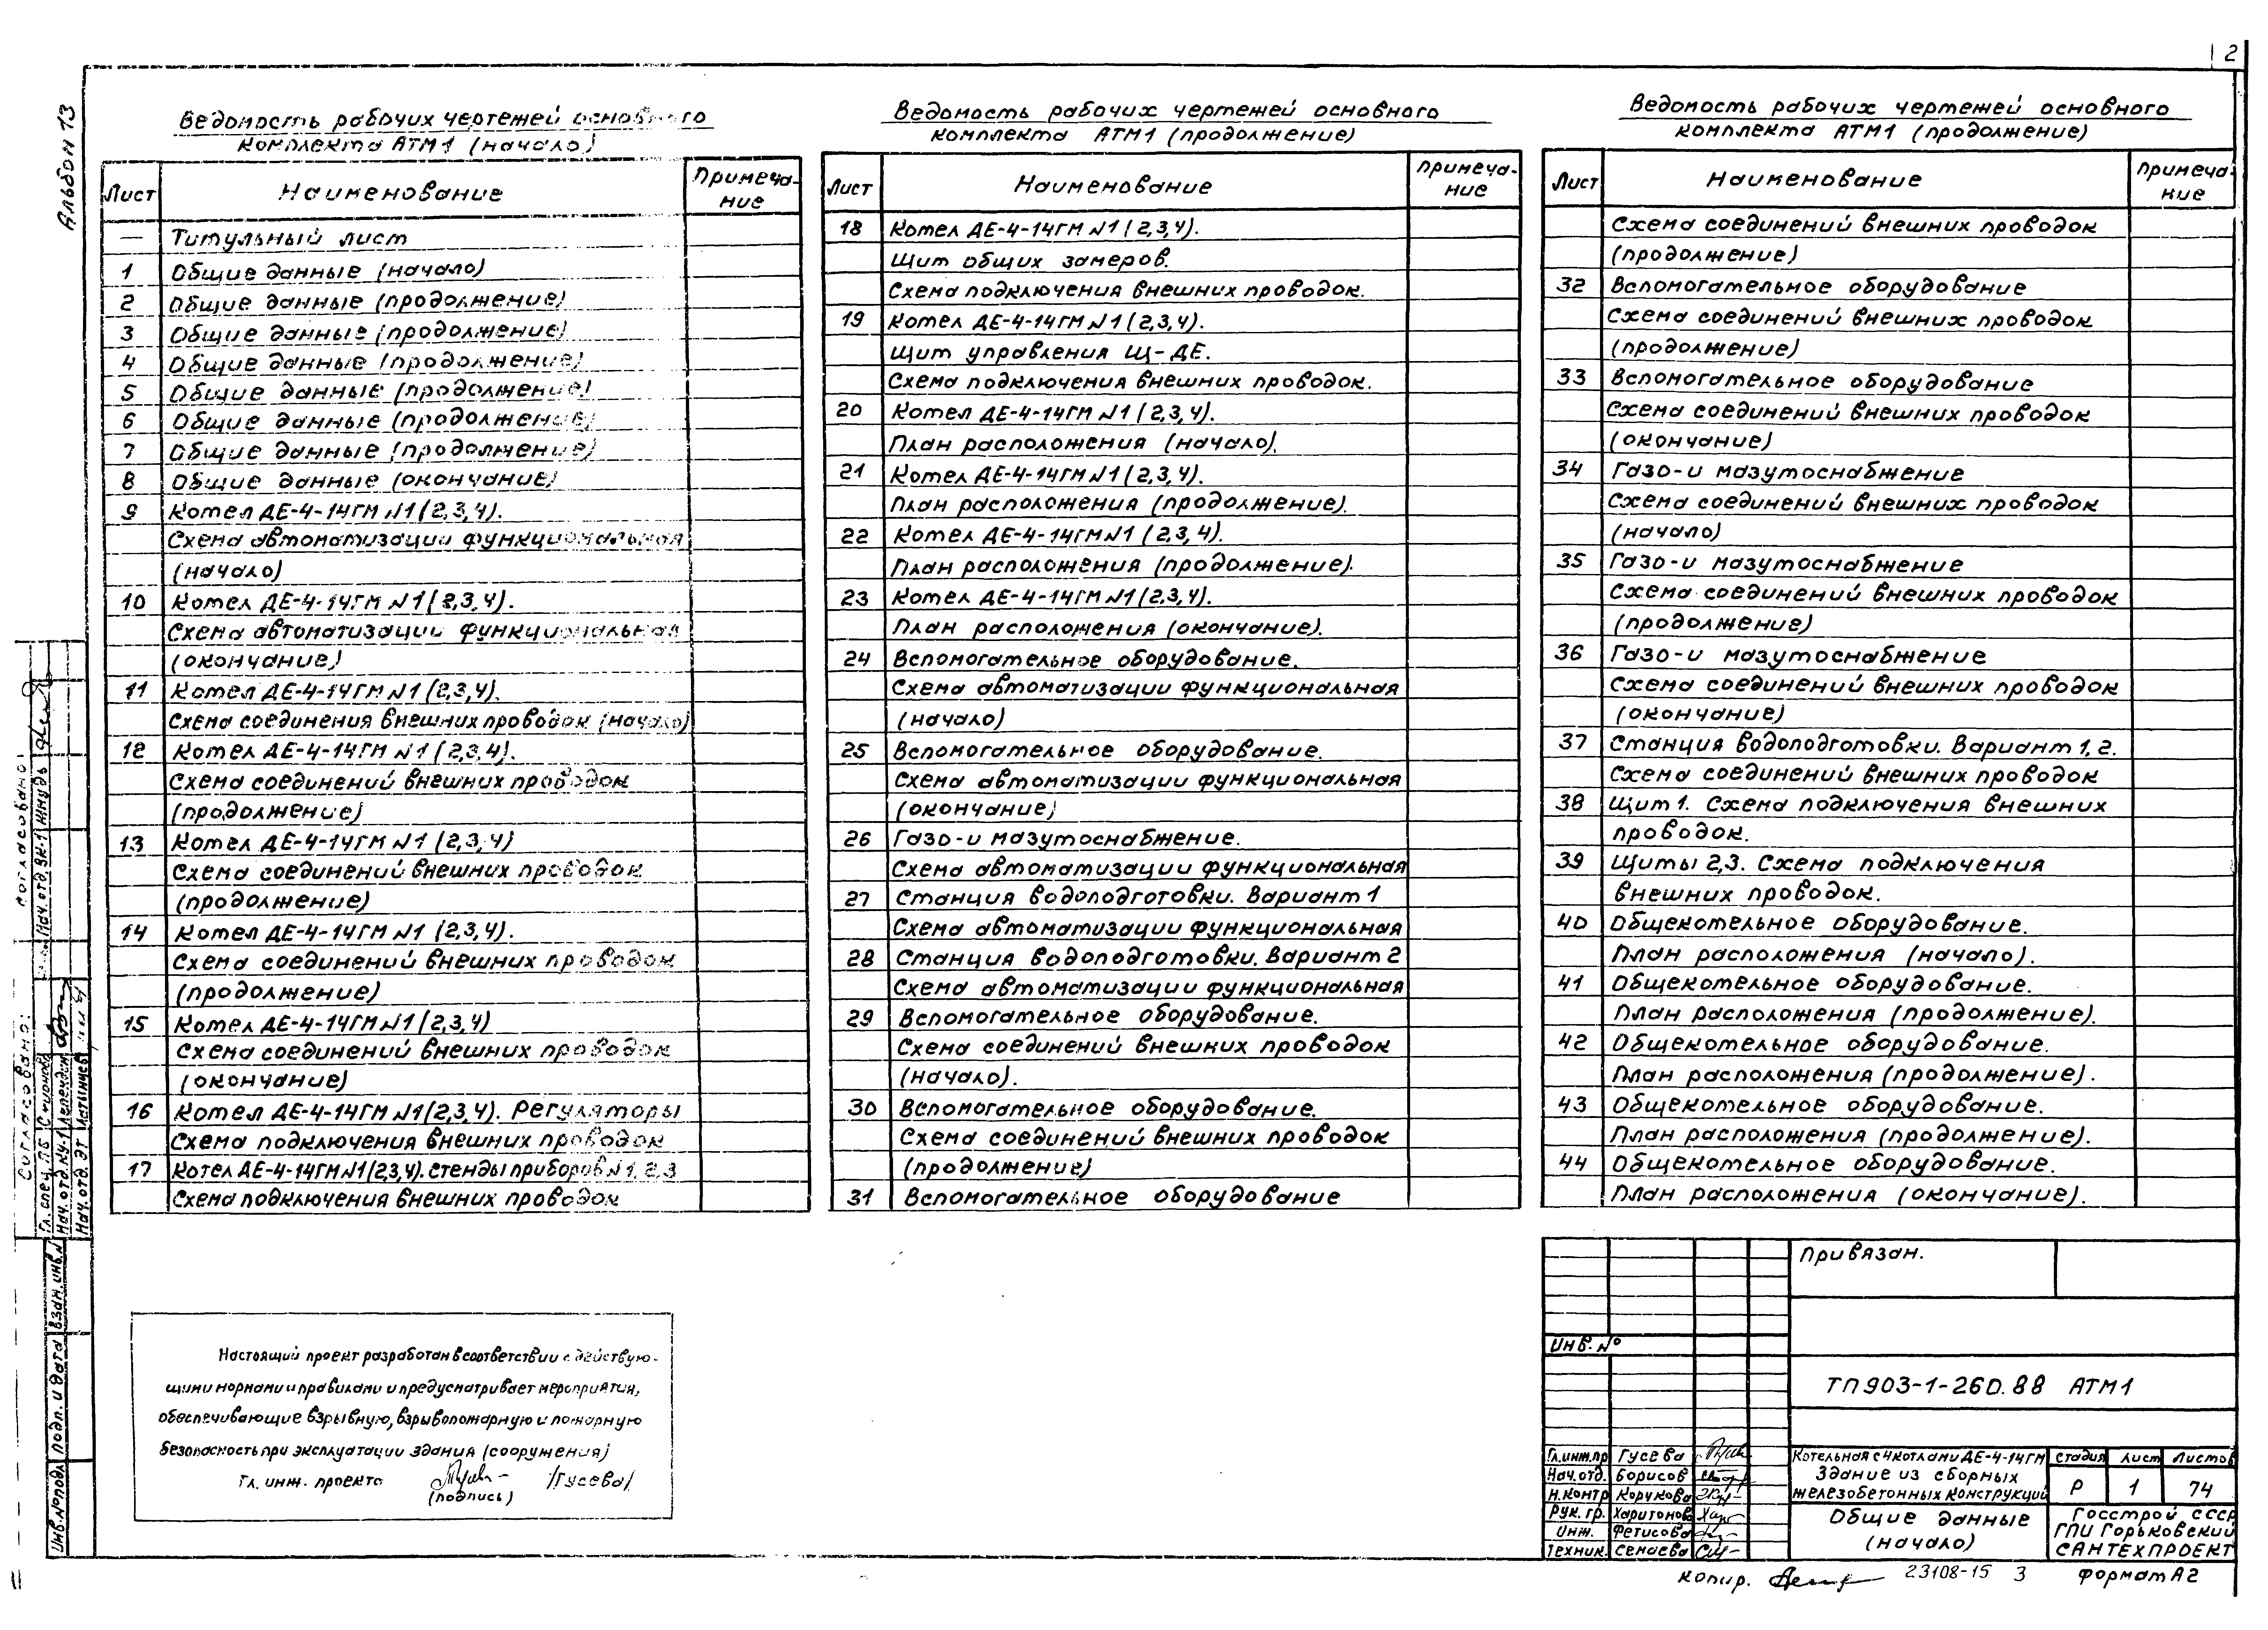 2
Альбом 13
Ведомость рабочих чертежей основного
комплекта АТМ1 (начало)
Лист Наименование Примеча-
ние
— Титульный лист
1 Общие данные (начало)
2 Общие данные (продолжение)
3 Общие данные (продолжение)
4 Общие данные (продолжение)
5 Общие данные (продолжение)
6 Общие данные (продолжение)
7 Общие данные (продолжение)
8 Общие данные (окончание)
9 Котел ДЕ-4-14ГМ №1 (2,3,4).
Схема автоматизации функциональная
(начало)
10 Котел ДЕ-4-14ГМ №1 (2,3,4).
Схема автоматизации функциональная
(окончание)
11 Котел ДЕ-4-14ГМ №1 (2,3,4).
Схема соединения внешних проводок (начало)
12 Котел ДЕ-4-14ГМ №1 (2,3,4).
Схема соединений внешних проводок
(продолжение)
13 Котел ДЕ-4-14ГМ №1 (2,3,4)
Схема соединений внешних проводок
(продолжение)
14 Котел ДЕ-4-14ГМ №1 (2,3,4).
Схема соединений внешних проводок
(продолжение)
15 Котел ДЕ-4-14ГМ №1 (2,3,4)
Схема соединений внешних проводок
(окончание)
16 Котел ДЕ-4-14ГМ №1 (2,3,4). Регуляторы
Схема подключения внешних проводок
17 Котел ДЕ-4-14ГМ №1 (2,3,4). Стенды приборов №1, 2, 3
Схема подключения внешних проводок
Ведомость рабочих чертежей основного
комплекта АТМ1 (продолжение)
Лист Наименование Примеча-
ние
18 Котел ДЕ-4-14ГМ №1 (2,3,4).
Щит общих замеров.
Схема подключения внешних проводок.
19 Котел ДЕ-4-14ГМ №1 (2,3,4).
Щит управления Щ-ДЕ.
Схема подключения внешних проводок.
20 Котел ДЕ-4-14ГМ №1 (2,3,4).
План расположения (начало).
21 Котел ДЕ-4-14ГМ №1 (2,3,4).
План расположения (продолжение).
22 Котел ДЕ-4-14ГМ №1 (2,3,4).
План расположения (продолжение).
23 Котел ДЕ-4-14ГМ №1 (2,3,4).
План расположения (окончание).
24 Вспомогательное оборудование.
Схема автоматизации функциональная
(начало)
25 Вспомогательное оборудование.
Схема автоматизации функциональная
(окончание)
26 Газо-и мазутоснабжение.
Схема автоматизации функциональная
27 Станция водоподготовки. Вариант 1
Схема автоматизации функциональная
28 Станция водоподготовки. Вариант 2
Схема автоматизации функциональная
29 Вспомогательное оборудование.
Схема соединений внешних проводок
(начало).
30 Вспомогательное оборудование.
Схема соединений внешних проводок
(продолжение)
31 Вспомогательное оборудование
Ведомость рабочих чертежей основного
комплекта АТМ1 (продолжение)
Лист Наименование Примеча-
ние
Схема соединений внешних проводок
(продолжение)
32 Вспомогательное оборудование
Схема соединений внешних проводок
(продолжение)
33 Вспомогательное оборудование
Схема соединений внешних проводок
(окончание)
34 Газо-и мазутоснабжение
Схема соединений внешних проводок
(начало)
35 Газо-и мазутоснабжение
Схема соединений внешних проводок
(продолжение)
36 Газо-и мазутоснабжение
Схема соединений внешних проводок
(окончание)
37 Станция водоподготовки. Вариант 1, 2.
Схема соединений внешних проводок
38 Щит 1. Схема подключения внешних
проводок.
39 Щиты 2,3. Схема подключения
внешних проводок.
40 Общекотельное оборудование.
План расположения (начало).
41 Общекотельное оборудование.
План расположения (продолжение).
42 Общекотельное оборудование.
План расположения (продолжение).
43 Общекотельное оборудование.
План расположения (продолжение).
44 Общекотельное оборудование.
План расположения (окончание).
Настоящий проект разработан в соответствии с действую-
щими нормами и правилами и предусматривает мероприятия,
обеспечивающие взрывную, взрывопожарную и пожарную
безопасность при эксплуатации здания (сооружения)
Гл. инж. проекта /Гусева/
(подпись)
Привязан.
Инв. №
ТП 903-1-260.88 АТМ1
Гл.инж.пр Гусева
Нач.отд. Борисов
Н.контр Корукова
Рук. гр. Харитонова
Инж. Фетисова
Техник.
Котельная с 4 котлами ДЕ-4-14ГМ
Здание из сборных
железобетонных конструкций
Стадия Лист Листов
Р 1 74
Общие данные
(начало)
Госстрой СССР
ГПИ Горьковский
САНТЕХПРОЕКТ
Копир. 23108-15 3 Формат А2
Согласовано:
Нач. отд. ВК-1 Жмудь
Согласовано:
Гл. спец. ПБ
Нач. отд. КУ-1
Нач. отд. ЭТ
Инв.№подл. Подп. и дата Взам. инв.№